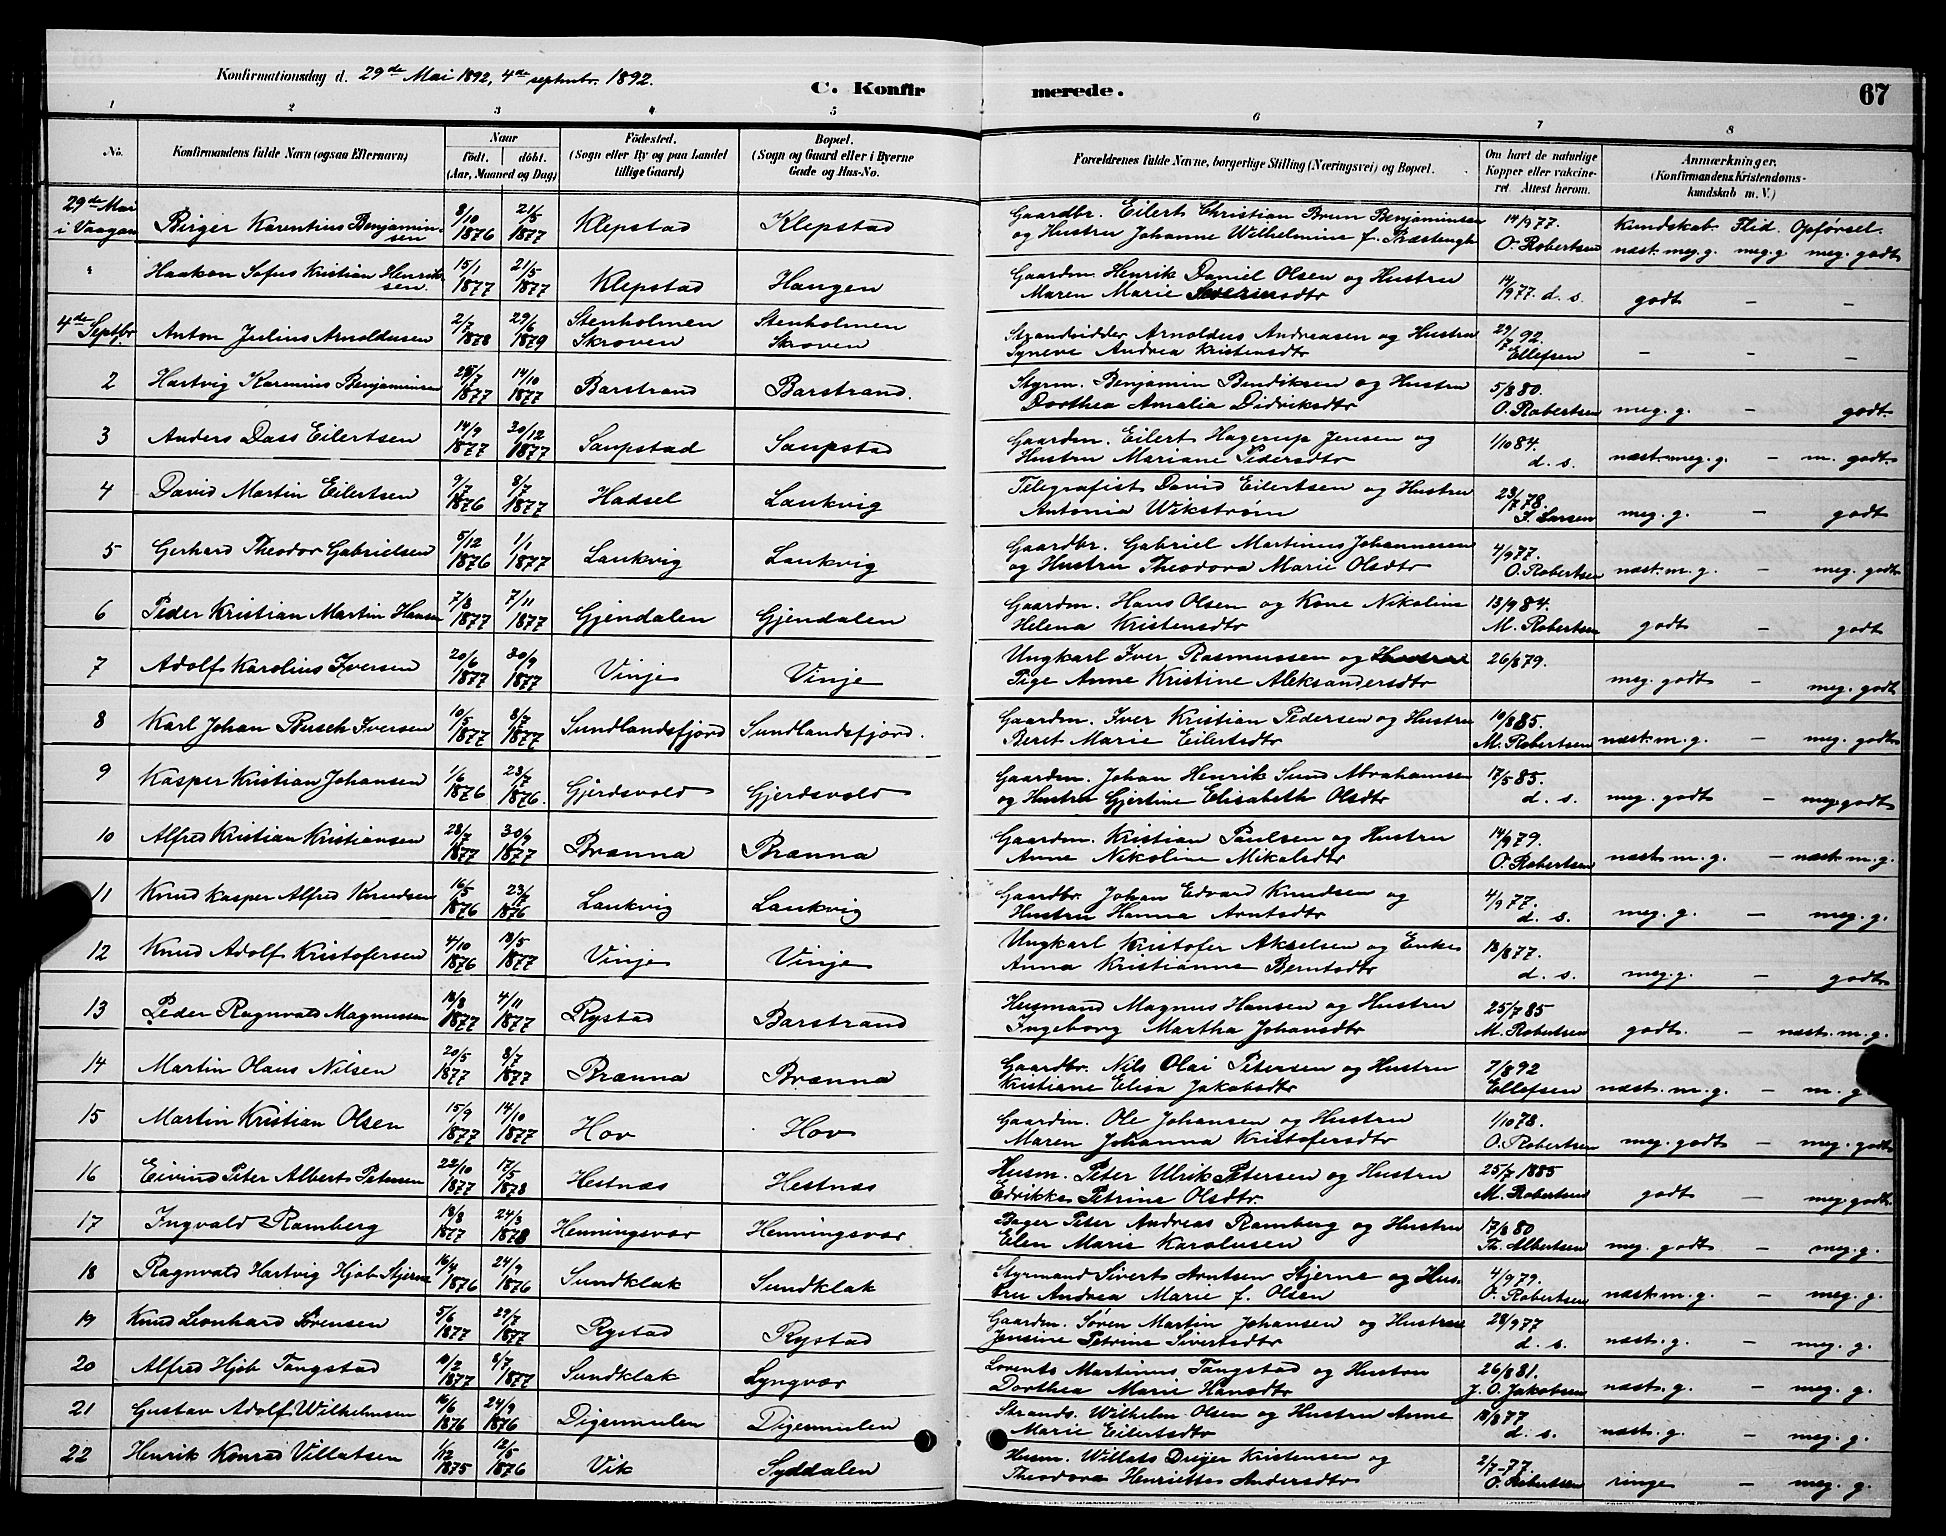 Konfirmationsdag d. 29de Mai 1892, 4de septembr. 1892.
C. Konfirmerede.
67
1 2 3 4 5 6 7 8
No. | Konfirmandens fulde Navn (ogsaa Efternavn) | Naar født. døbt. (Aar, Maaned og Dag) | Födested. (Sogn eller By og paa Landet tillige Gaard) | Bopæl. (Sogn og Gaard eller i Byerne Gade og Hus-No. | Forældrenes fulde Navne, borgerlige Stilling (Næringsvei) og Bopæl. | Om havt de naturlige Kopper eller vakcineret. Attest herom. | Anmærkninger. (Konfirmandens Kristendomskundskab m. V.)
29de Mai i Vaagan | Birger Karentius Benjaminsen | 8/10 1876 | 21/5 1877 | Klepstad | Klepstad | Gaardbr. Eilert Christian Brun Benjaminsen og Hustru Johanne Wilhelmine f. | 14/9 77. O. Robertsen | Kundskab. Flid. Opførsel. næst. meg. g. meg. g meg. godt
" | Haakon Sofus Kristian Henriksen. | 15/1 1877 | 21/5 1877 | Klepstad | Haugen | Gaardm. Henrik Daniel Olsen og Hustru Maren Marie | 14/9 77. d. s. | godt – –
4de Septbr | Anton Julius Arnoldusen | 2/7 1878 | 29/6 1879 | Stenholmen Skroven | Stenholmen Skroven | Strandsidder Arnoldus Andreasen og Hustru Syneve Andrea Kristensdtr | 29/7 92. Ellefsen | – – –
2 | Hartvig Karenius Benjaminsen | /7 1877 | 14/10 1877 | Barstrand | Barstrand. | Styrm. Benjamin Bendiksen og Hustru Dorthea Amalia Didriksdtr | 5/8 80. O. Robertsen | meg. g. – godt
3 | Anders Dass Eilertsen | 14/9 1877 | 30/12 1877 | Saupstad | Saupstad | Gaardm. Eilert Hagerup Jensen og Hustru Mariane Pedersdtr | 1/10 84. d. s. | næst. meg. g. – m. godt.
4 | David Martin Eilertsen | 9/7 1876 | 8/7 1877 | Hadsel | Laukvig | Telegrafist David Eilertsen og Hustru Antonia Wikstrøm | 23/7 78. Larsen | meg. g. – godt
5 | Gerhard Theodor Gabrielsen | 5/12 1876 | 1/1 1877 | Laukvig | Laukvig | Gaardbr. Gabriel Martinus Johannesen og Hustru Theodora Marie Olsdtr | 4/9 77. O. Robertsen | næst. m. g. – meg. godt
6 | Peder Kristian Martin Hansen | 7/8 1877 | 7/11 1877 | Gjendalen | Gjendalen | Gaardm. Hans Olsen og Kone Nikoline Helena Kristensdtr | 13/9 84. M. Robertsen | godt – godt
7 | Adolf Karolius Iversen | 20/6 1877 | 30/9 1877 | Vinje | Vinje | Ungkarl Iver Rasmussen og Hustru Pige Anne Kristine Aleksandersdtr | 26/8 79. | meg. godt – meg. godt
8 | Karl Johan Busch Iversen | 10/5 1877 | 8/7 1877 | Sundlandsfjord | Sundlandsfjord. | Gaardm. Iver Kristian Pedersen og Hustru Beret Marie Eilertsdtr | 10/8 85. M. Robertsen | næst. m. g. – meg. godt
9 | Kasper Kristian Johansen | 1/6 1876 | 23/7 1876. | Gjerdsvold | Gjerdsvold | Gaardm. Johan Henrik Sund Abrahamsen og Hustru Gjertine Elisabeth Olsdtr | 17/5 85. d. s. | meg. godt – meg godt
10 | Alfred Kristian Kristiansen | 28/7 1877 | 30/9 1877 | Brænna | Brænna | Gaardm. Kristian Paulsen og Hustru Anne Nikoline Mikalsdtr | 14/9 79. O. Robertsen | næst. m. g. – næst. m. g.
11 | Knud Kasper Alfred Knudsen | 16/5 1876 | 23/7 1876 | Laukvig | Laukvig | Gaardbr. Johan Edvard Knudsen og Hustru Hanna Arntsdtr | 4/9 77. d. s. | meg. g. – meg. g.
12 | Knud Adolf Kristofersen | 4/10 1876 | 13/5 1877 | Vinje | Vinje | Ungkarl Kristofer Akselsen og Enke Anna Kristianne Berntsdtr | 13/8 77. d. s. | meg. g. – godt
13 | Peder Ragnvald Magnussen | 13/8 1877 | 4/11 1877 | Rystad | Barstrand | Husmand Magnus Hansen og Hustru Ingeborg Martha Johansdtr | 25/7 85 M. Robertsen | godt. – næst. m. g.
14 | Martin Olaus Nilsen | 20/5 1877 | 8/7 1877 | Brænna | Brænna | Gaardbr. Nils Olai Petersen og Hustru Kristiane Elisa Jakobsdtr | 7/8 92 Ellefsen | næst. m. g. – m. g.
15 | Martin Kristian Olsen | 15/9 1877 | 14/10 1877 | Hov | Hov | Gaardm. Ole Johansen og Hustru Maren Johanna Kristofersdtr | 1/10 78. O. Robertsen | meg. godt – meg. godt
16 | Eivind Peter Albert Petersen | 22/10 1877 | 17/5 1878 | Hestnæs | Hestnæs | Husm. Peter Ulrik Petersen og Hustru Edrikke Petrine Olsdtr | 25/7 1885 M. Robertsen | godt – meg. godt
17 | Ingvald Ramberg | 13/8 1877 | 24/3 1878 | Henningsvær | Henningsvær | Bager Peter Andreas Ramberg og Hustru Elen Marie Karolusen | 17/8 80 Th. Albertsen | meg. godt – meg. g.
18 | Ragnvald Hartvig Hjob Stjerne | 16/4 1876 | 24/9 1876 | Sundklak | Sundklak | Styrmand Sivert Arntsen Stjerne og Hustru Andrea Marie f. Olsen | 4/9 79. O. Robertsen | næst. m. g. – meg. g.
19 | Knud Leonhard Sørensen | 5/6 1877 | 29/7 1877 | Rystad | Rystad | Gaardm. Søren Martin Johansen og Hustru Jensine Petrine Sivertsdtr | 28/9 77 d. s. | næst. g. – meg. g.
20 | Alfred Hjob Tangstad | 10/2 1877 | 8/7 1877 | Sundklak | Lyngvær | Lorents Martinus Tangstad og Hustru Dorthea Marie Hansdtr | 26/8 81. J. O. Jakobsen | næst. g. – meg. g.
21 | Gustav Adolf Wilhelmsen | 16/6 1876 | 24/9 1876 | Digermulen | Digermulen | Strands. Wilhelm Olsen og Hustru Anne Marie Eilertsdtr | 13/8 77 d. s. | næst. g. – meg. g.
22 | Henrik Konrad Villatsen | 1/12 1875 | 12/5 1876 | Vik | Syddalen | Husm. Willats Dreyer Kristensen og Theodora Henriette Andersdtr | 2/7-77 O. Robertsen | ringe – meg. g.